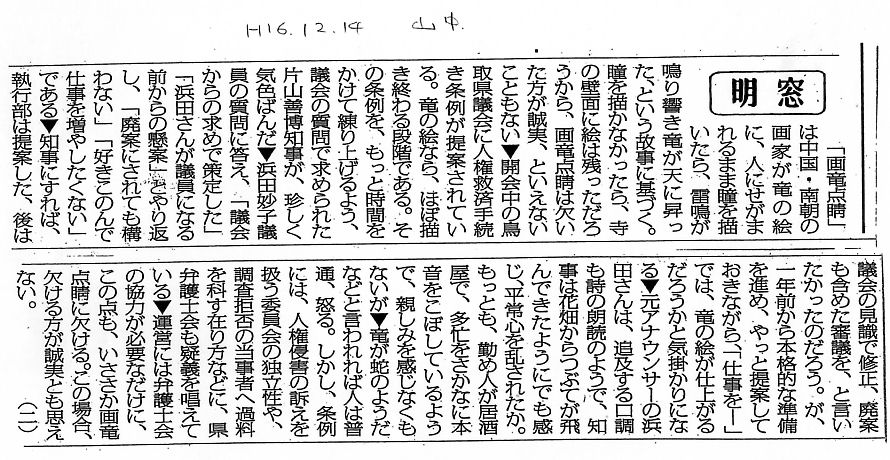 H16.12.14 山中.
明窓
「画竜点睛」
は中国・南朝の
画家が竜の絵
に、人にせがま
れるまま瞳を描
いたら、雷鳴が
鳴り響き竜が天に昇っ
た、という故事に基づく。
瞳を描かなかったら、寺
の壁面に絵は残っただろ
うから、画竜点睛は欠い
た方が誠実、といえない
こともない▼開会中の鳥
取県議会に人権救済手続
き条例が提案されてい
る。竜の絵なら、ほぼ描
き終わる段階である。そ
の条例を、もっと時間を
かけて練り上げるよう、
議会の質問で求められた
片山善博知事が、珍しく
気色ばんだ▼浜田妙子議
員の質問に答え、「議会
からの求めで策定した」
「浜田さんが議員になる
前からの懸案」とやり返
し、「廃案にされても構
わない」「好きこのんで
仕事を増やしたくない」
である▼知事にすれば、
執行部は提案した、後は
議会の見識で修正、廃案
も含めた審議を、と言い
たかったのだろう。が、
一年前から本格的な準備
を進め、やっと提案して
おきながら、「仕事をー」
では、竜の絵が仕上がる
だろうかと気掛かりにな
る▼元アナウンサーの浜
田さんは、追及する口調
も詩の朗読のようで、知
事は花畑からつぶてが飛
んできたようにでも感
じ、平常心を乱されたか。
もっとも、勤め人が居酒
屋で、多忙をさかなに本
音をこぼしているよう
で、親しみを感じなくも
ないが▼竜が蛇のようだ
などと言われれば人は普
通、怒る。しかし、条例
には、人権侵害の訴えを
扱う委員会の独立性や、
調査拒否の当事者へ過料
を科す在り方などに、県
弁護士会も疑義を唱えて
いる▼運営には弁護士会
の協力が必要なだけに、
この点も、いささか画竜
点睛に欠ける。この場合、
欠ける方が誠実とも思え
ない。
（二）